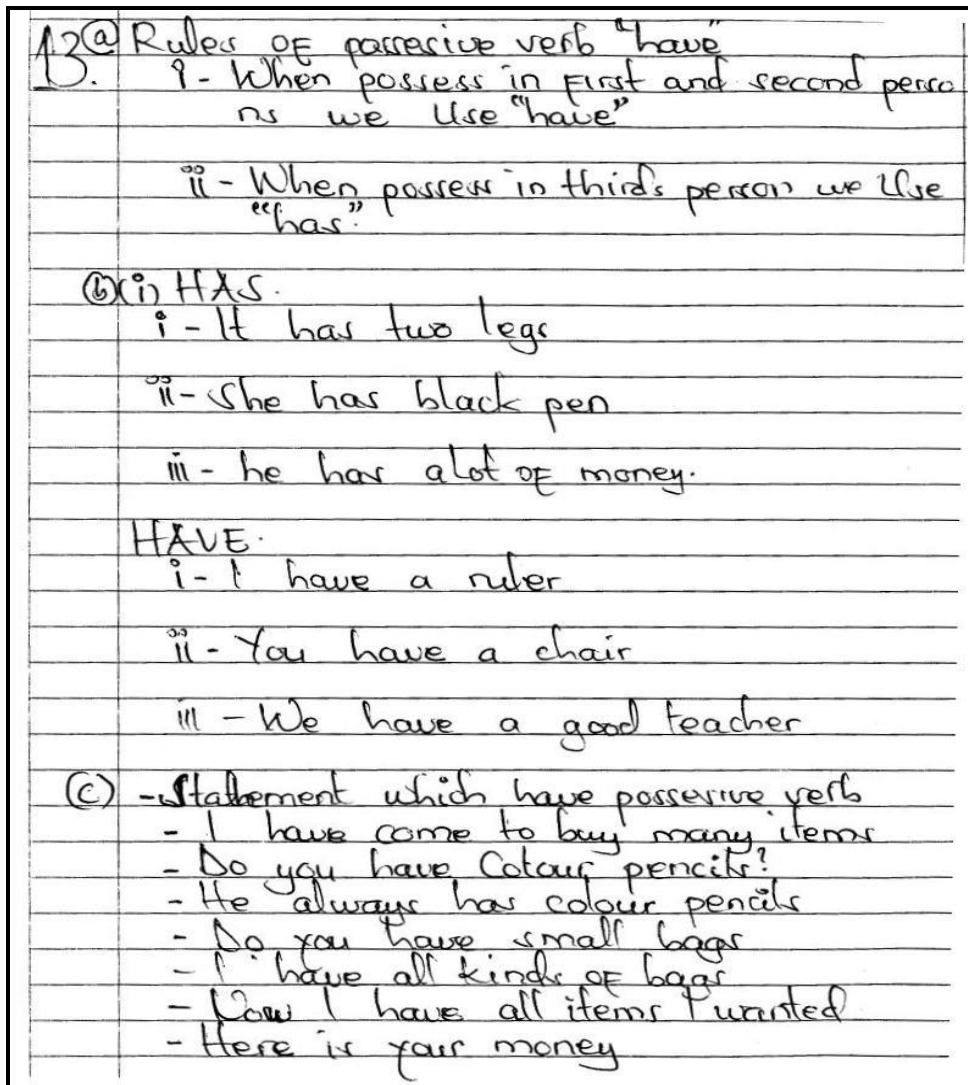 13. (a) Rules OF possesive verb "have"
i - When possess in First and second perso
ns we Use "have"
ii - When possess in thirds person we Use
"has".
(b)(i) HAS.
i - It has two legs
ii - She has black pen
iii - he has alot OF money.
HAVE.
i - I have a ruler
ii - You have a chair
iii - We have a good teacher
(c) - Stathement which have possessive verb
- I have come to buy many items
- Do you have Colour pencils?
- He always has colour pencils
- Do you have small bags
- I have all kinds OF bags
- Now I have all items I wanted
- Here is your money